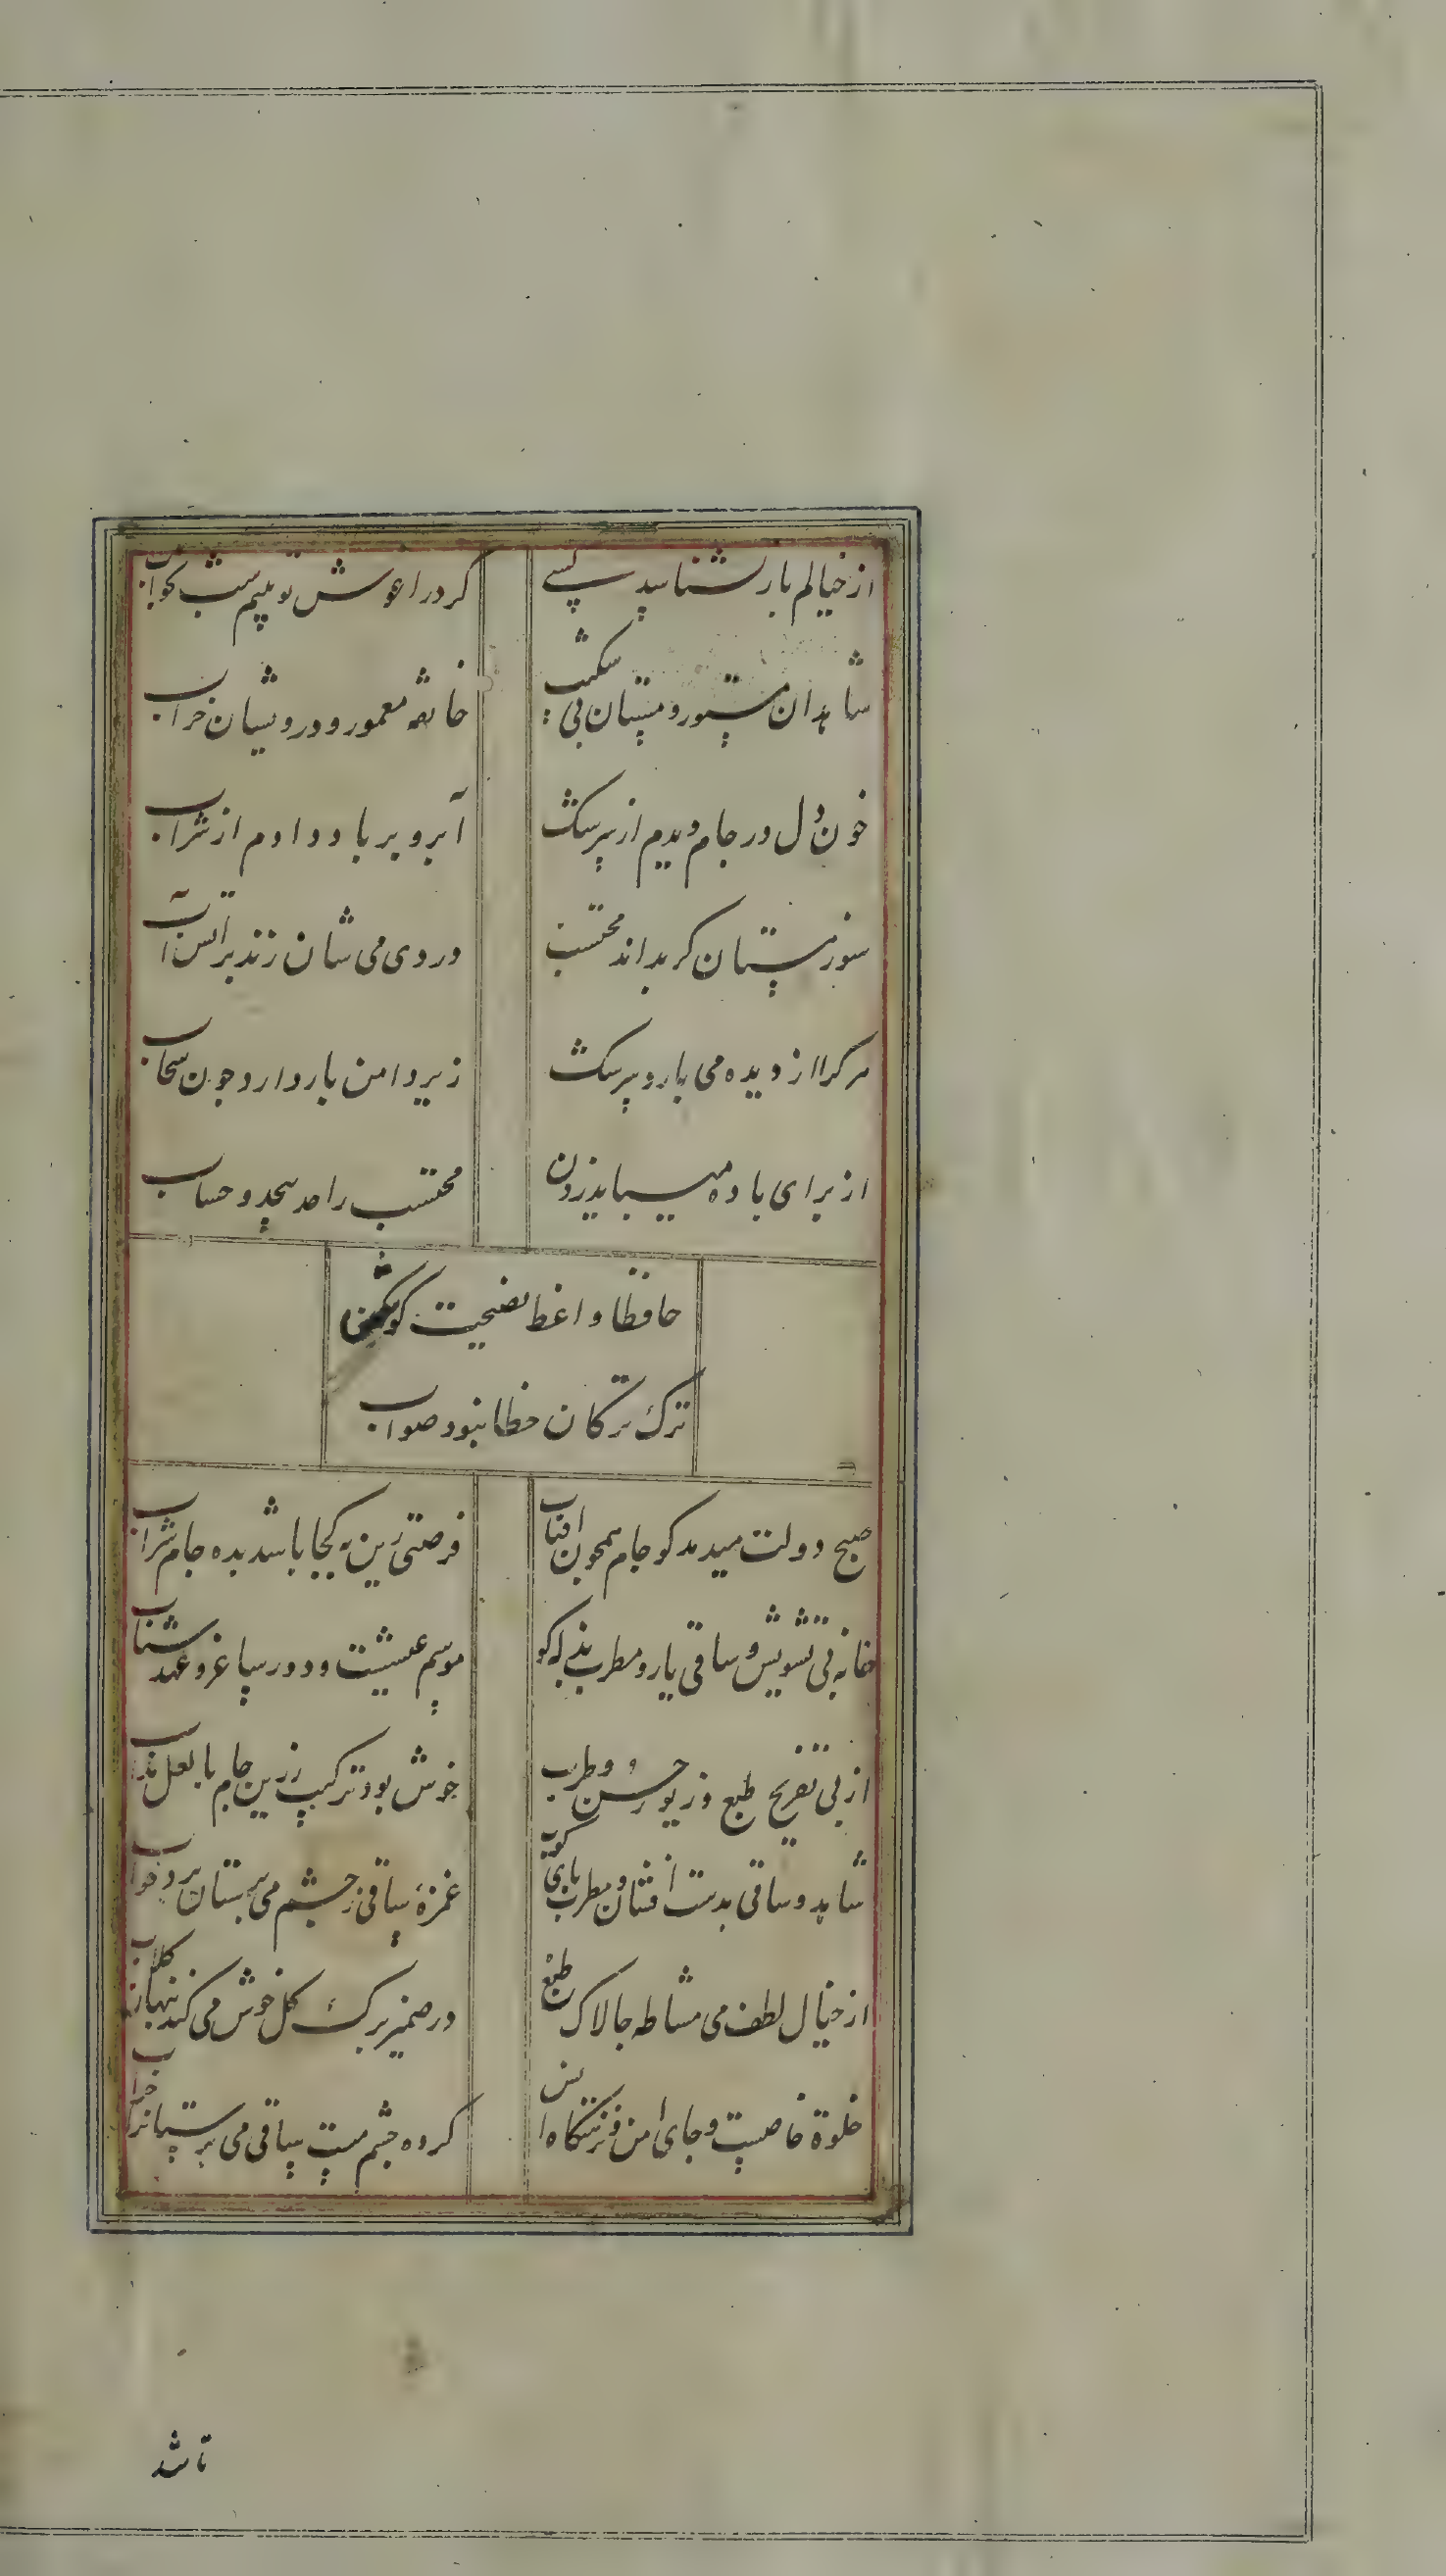 از خیالم باز نشناسد کسی
کر در اغوش تو بینم شب بخواب
شاهدان مستور و مستان بی شکیب
خانقه معمور و درویشان خراب
خون دل در جام دیدم از سرشک
آبرو بر باد دادم از شراب
سوز مستان کر بداند محتسب
در دی می شان زند بر اتش آب
هر کرا از دیده می بارد سرشک
زیر دامن بار دارد چون سحاب
از برای باده می باید زدن
محتسب را حد بیحد و حساب
حافظا واعظ نصیحت کو مکن
ترک ترکان خطا نبود صواب
صبح دولت میدمد کو جام همچون افتاب
فرصتی زین به کجا باشد بده جام شراب
خانه بی تشویش و ساقی یار و مطرب بذله کو
موسم عیشست و دور ساغر و عهد شباب
از پی تفریح طبع و زیور حسن و طرب
خوش بود ترکیب زرین جام با لعل مذاب
شاهد و ساقی بدست افشان و مطرب پای کوب
غمزه ساقی ز چشم می پرستان برده خواب
از خیال لطف می مشاطه چالاک طبع
در ضمیر برک کل خوش می کند پنهان کلاب
خلوة خاصست و جای امن و نزهتکاه انس
کرده چشم مست ساقی می پرستانرا خراب
تا شد